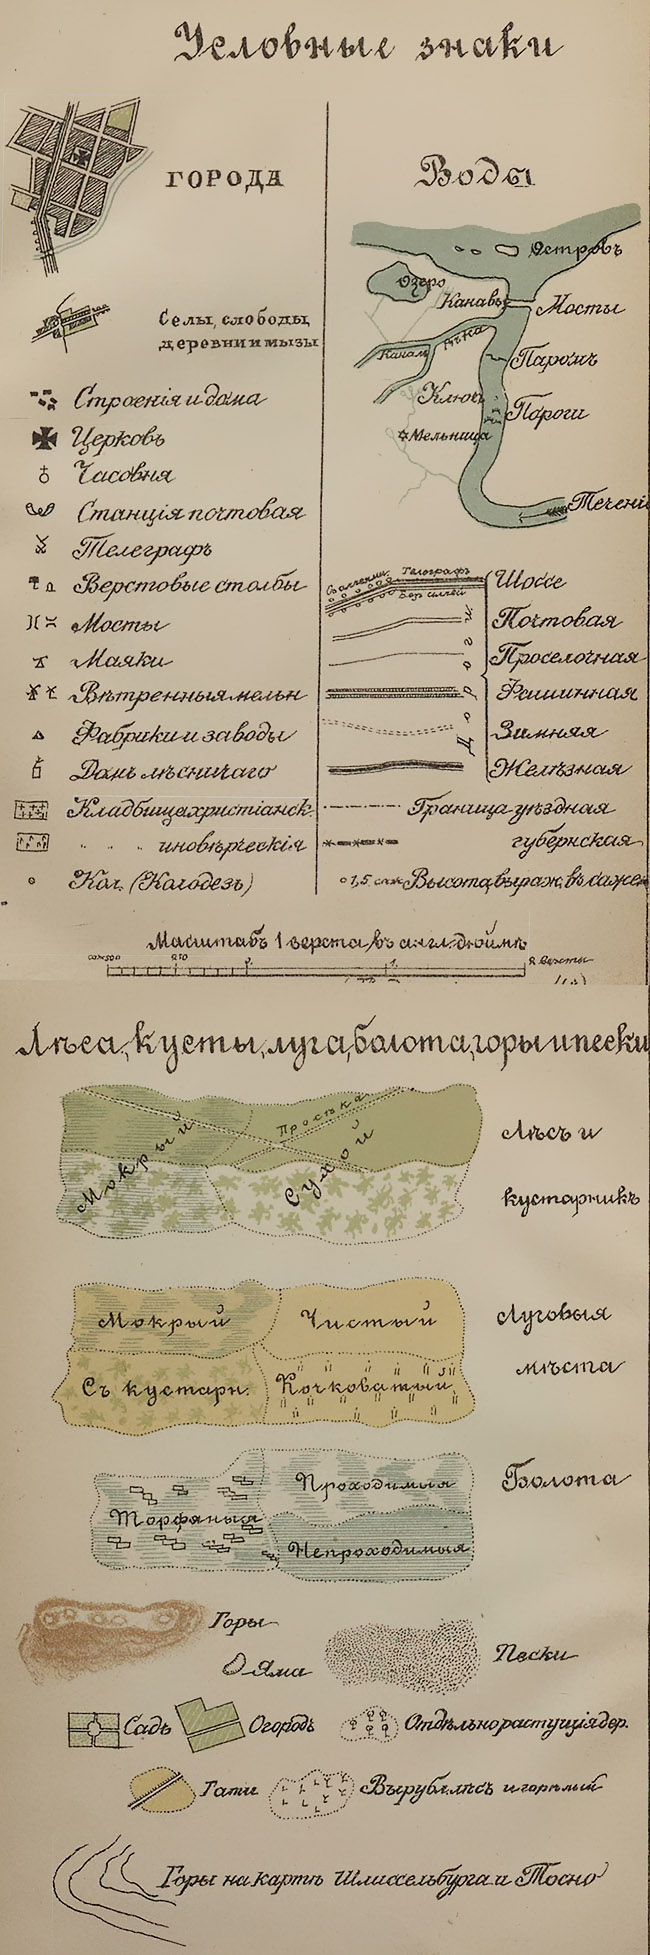 Условные знаки
ГОРОДА
Селы, слободы,
деревни и мызы
Строенія и дома
Церковь
Часовня
Станція почтовая
Телеграфъ
Верстовые столбы
Мосты
Маяки
Вѣтренныя мельн
Фабрики и заводы
Домъ лѣсничаго
Кладбища христіанск.
" " " иновѣрческія
Кол. (Колодезь)
Воды
Островъ
Озеро
Канавы
Мосты
Рѣка
Каналъ
Паромъ
Ключъ
Пороги
Мельница
Теченіе
Телеграфъ
Шоссе
Почтовая
Проселочная
Фашинная
Зимняя
Желѣзная
Дороги
Граница уѣздная
губернская
1,5 саж. Высота, выраж. въ сажен
Масштабъ 1 верста, въ англ. дюймѣ
саж 500 250 0 1 2 версты
Лѣса, кусты, луга, болота, горы и пески
Просѣка
Мокрый
Сухой
Лѣсъ и
кустарникъ
Мокрый
Чистый
Луговыя
мѣста
Съ кустарн.
Кочковатый
Проходимыя
Болота
Торфяныя
Непроходимыя
Горы
Яма
Пески
Садъ
Огородъ
Отдѣльно растущія дер.
Гати
Вырубл. лѣсъ и горѣлый
Горы на картѣ Шлиссельбурга и Тосно